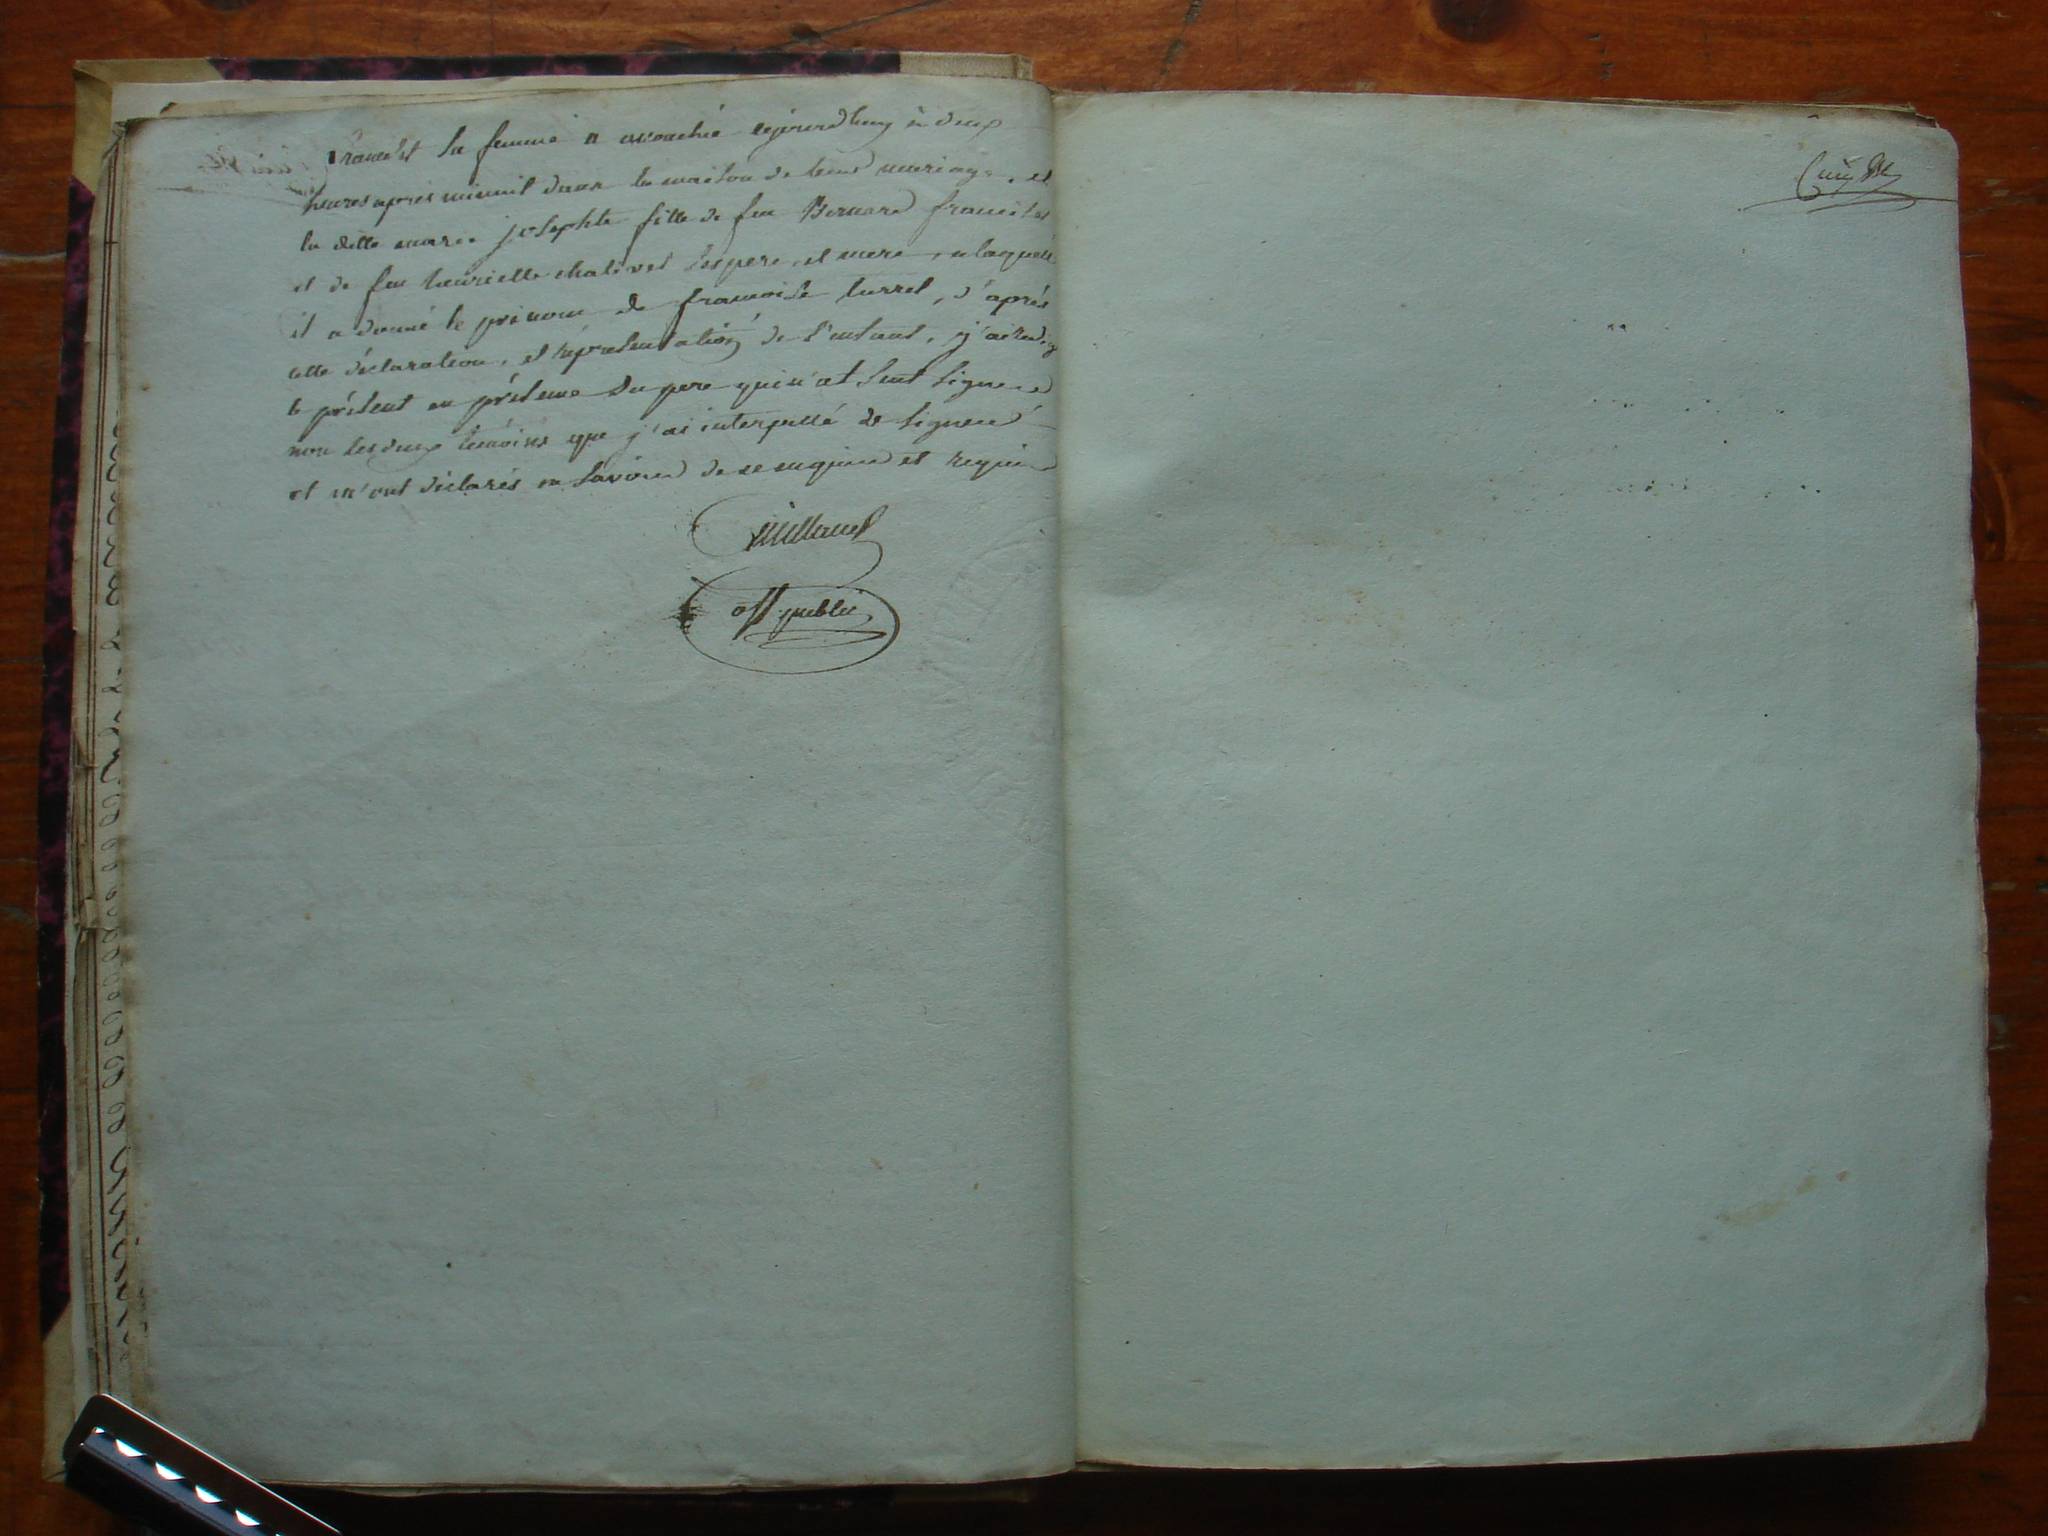 sa femme a accouchée aujourdhuy à deux
heures après minuit dans la maison de leur mariage, et
la ditte marie josephte fille de feu Bernard
et de feu ses pere et mere, a laquelle
il a donné le prénom de francoise turrel, d'après
cette déclaration, et représentation de l'enfant, j'ai
le présent en présence du pere qui n'at seut signer
non les deux témoins que j'ai interpellé de signer
et m'ont déclarés ne savoir de ce enquis et requis
off public